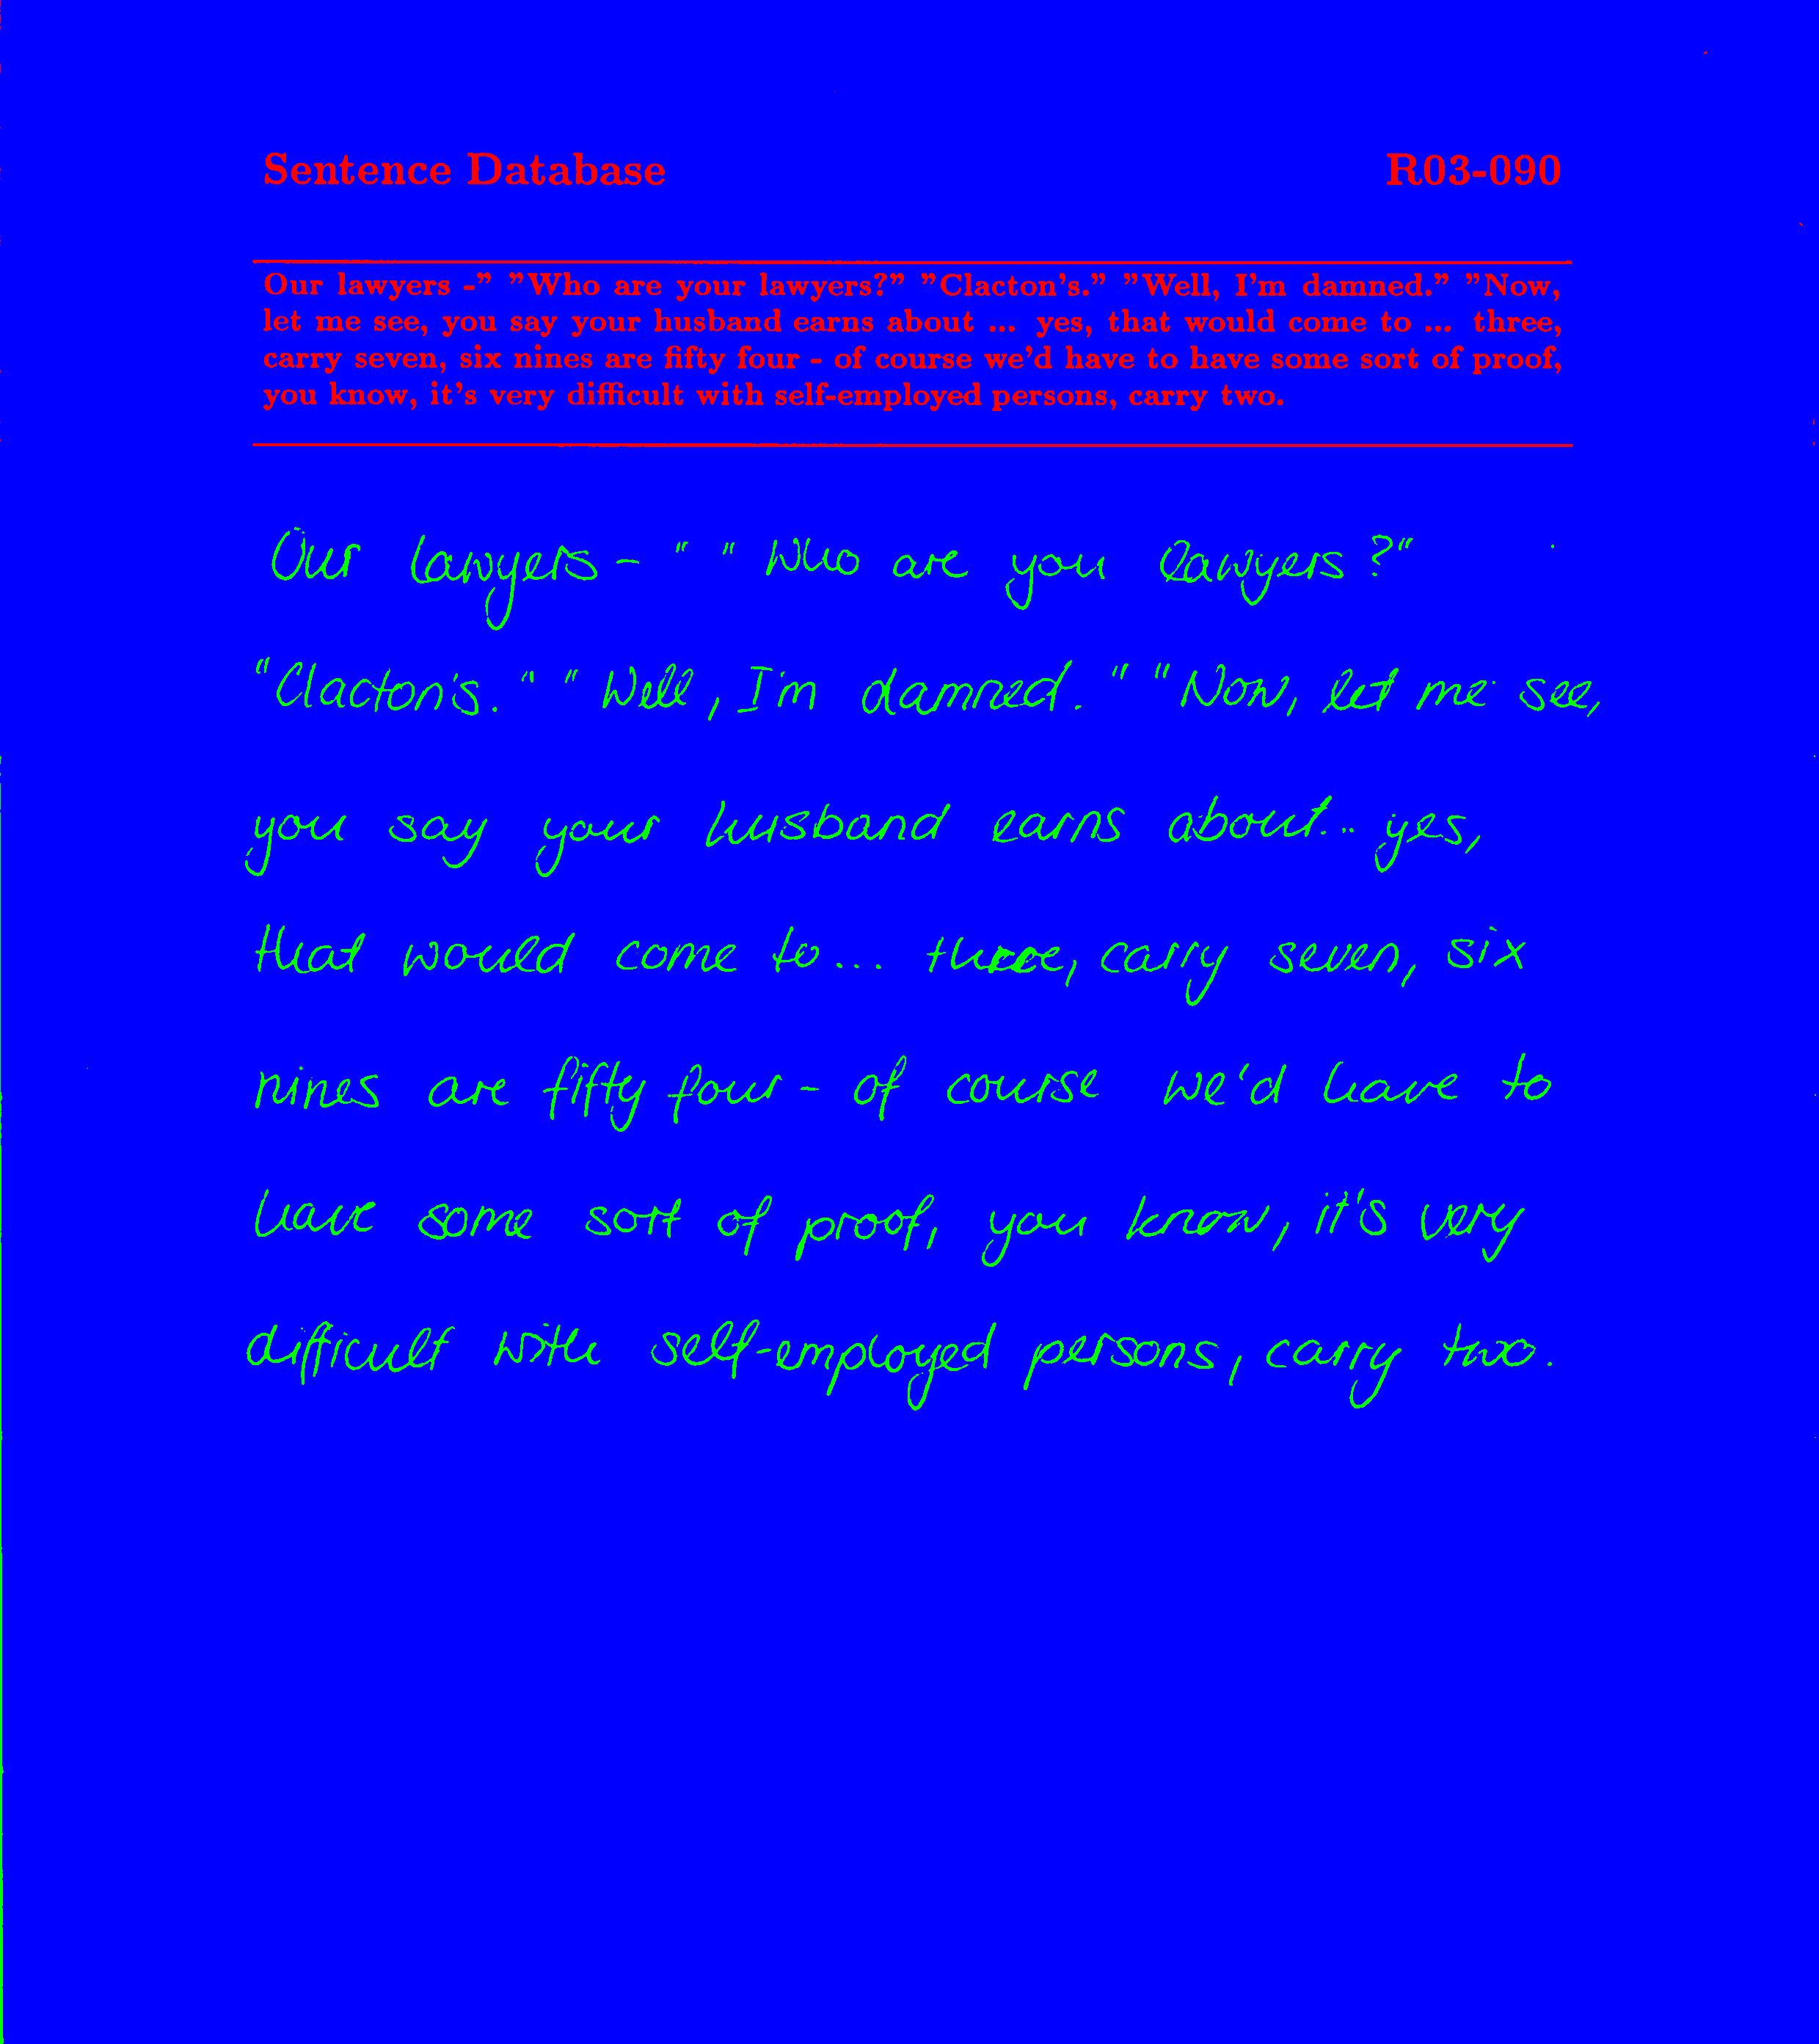 Sentence Database R03-090
Our lawyers -" "Who are your lawyers?" "Clacton's." "Well, I'm damned." "Now,
let me see, you say your husband earns about ... yes, that would come to ... three,
carry seven, six nines are fifty four - of course we'd have to have some sort of proof,
you know, it's very difficult with self-employed persons, carry two.
Our lawyers - " " Who are you lawyers ?"
"Clacton's. " " Well, I'm damned. " "Now, let me see,
you say your husband earns about... yes,
that would come to... three, carry seven, six
nines are fifty four - of course we'd have to
have some sort of proof, you know, it's very
difficult with self-employed persons, carry two.